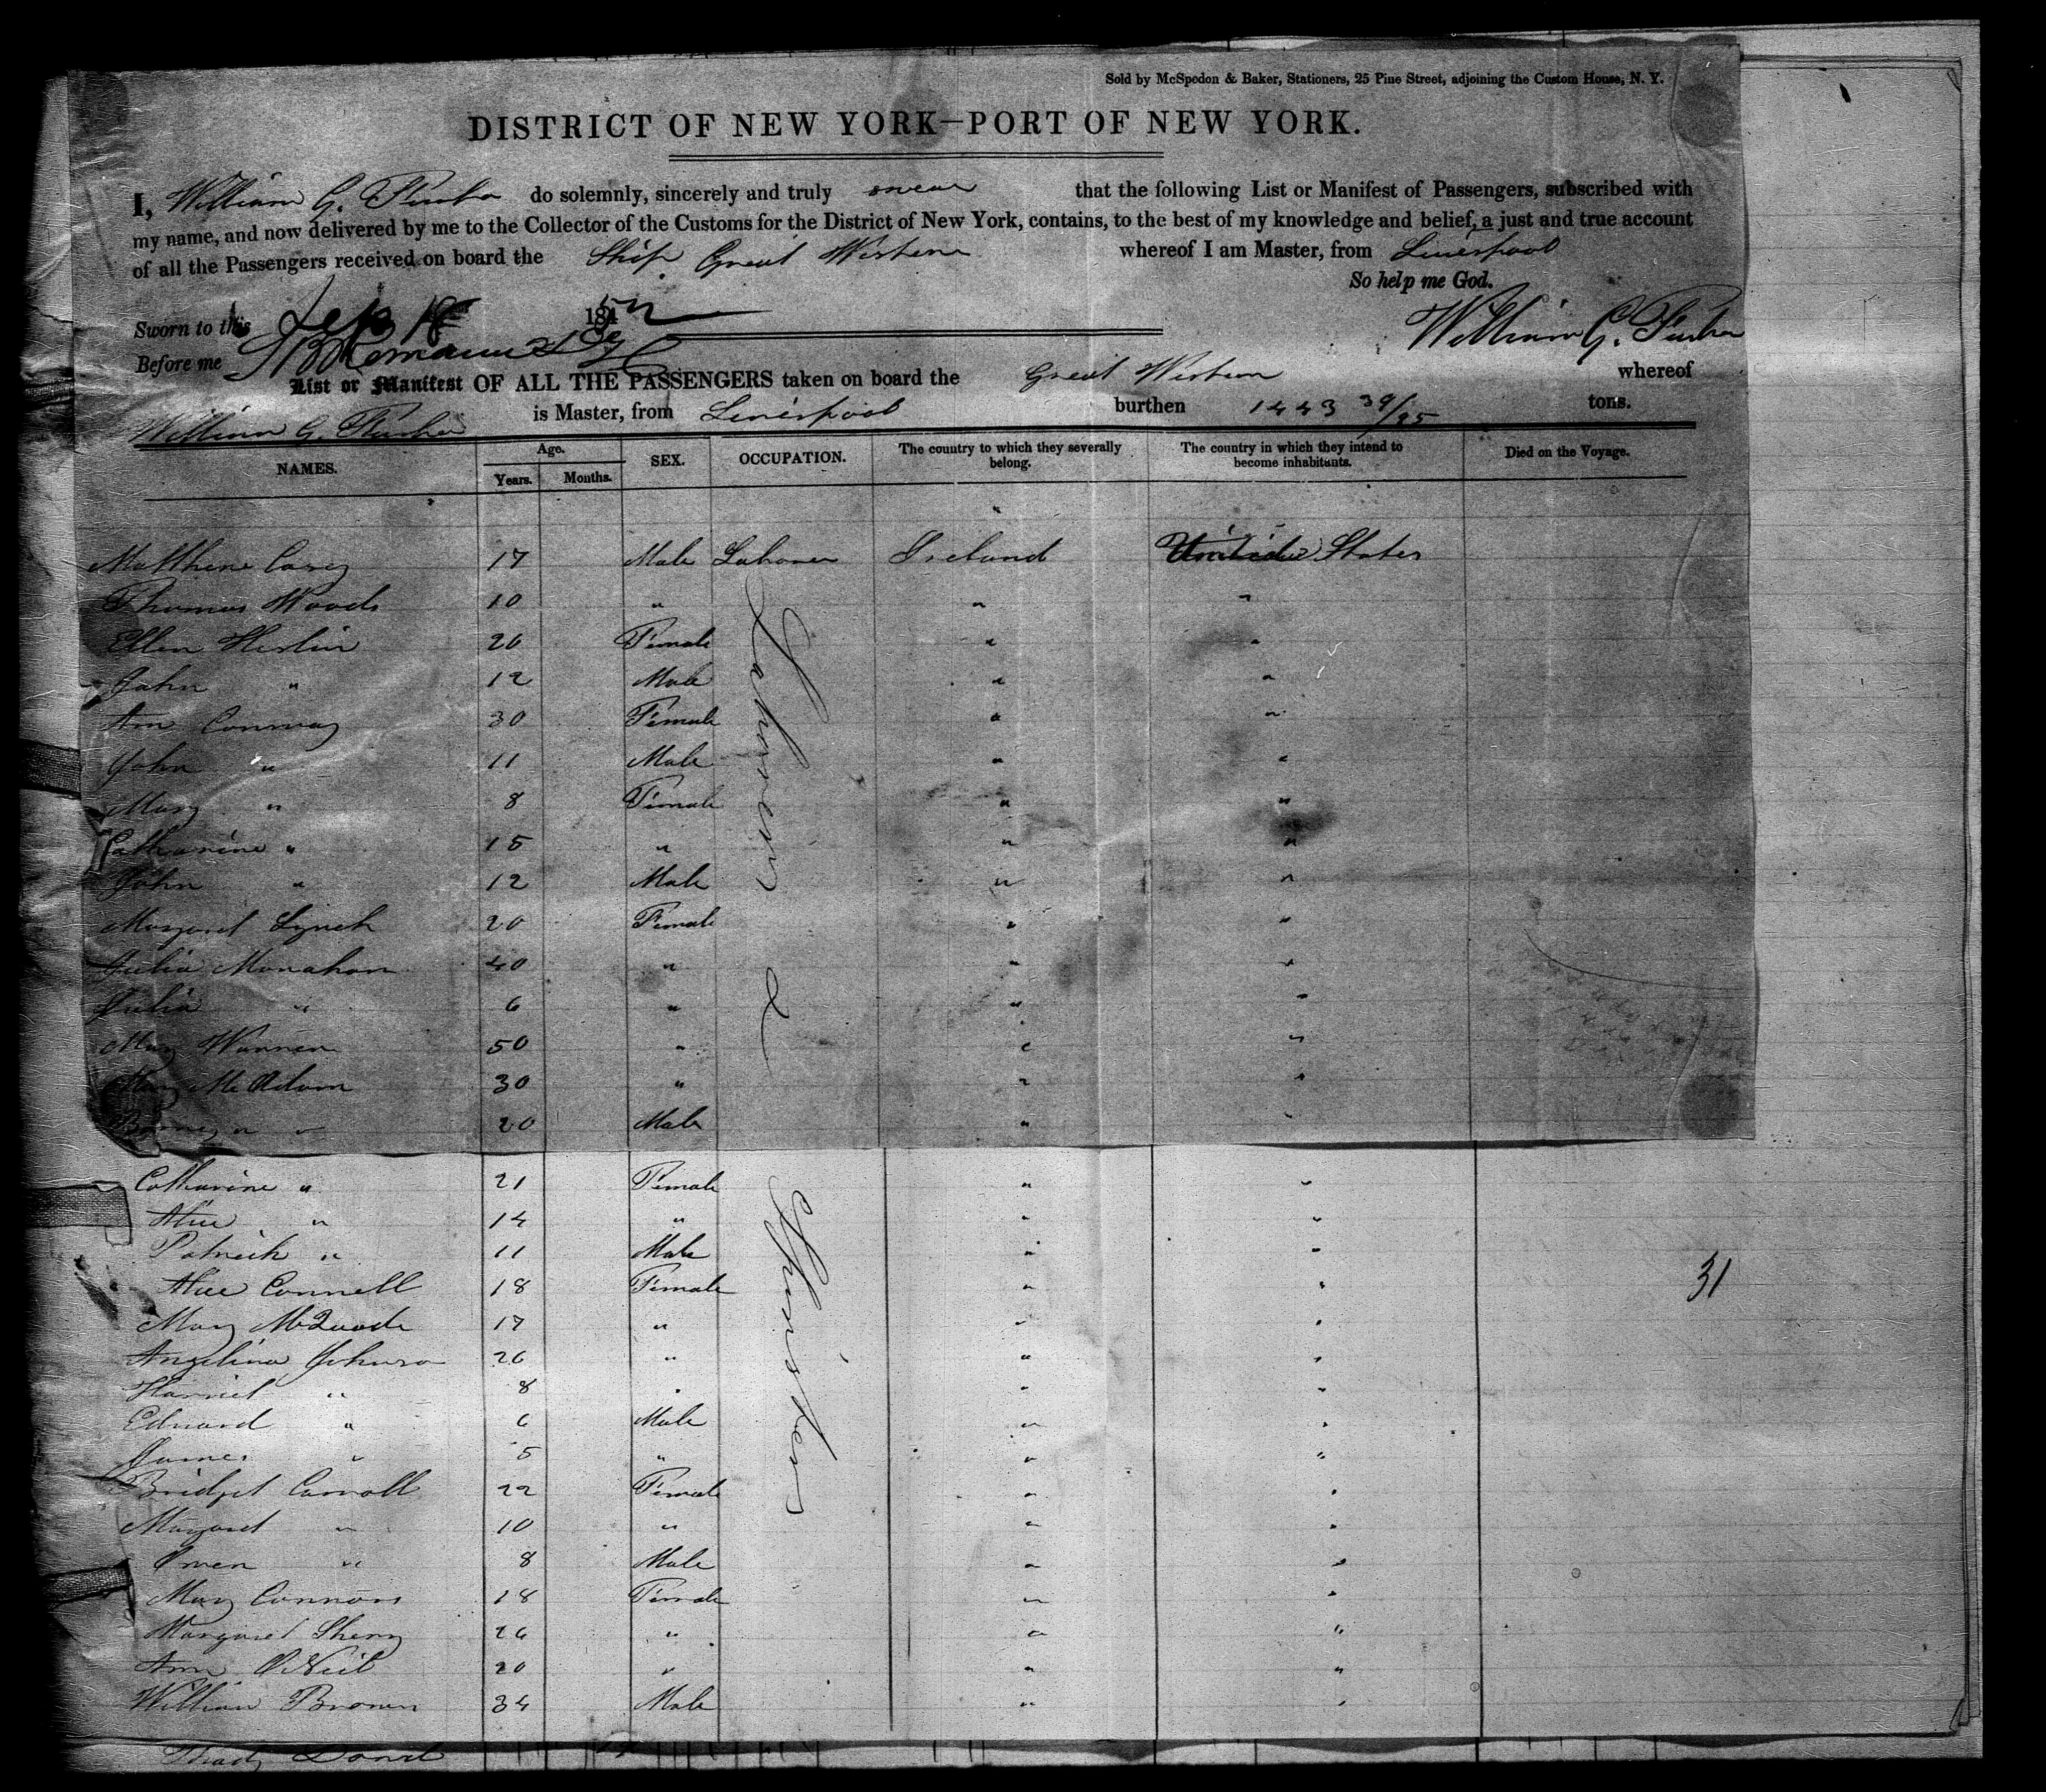 Sold by McSpedon & Baker, Stationers, 25 Pine Street, adjoining the Custom House, N. Y.
DISTRICT OF NEW YORK—PORT OF NEW YORK.
I, William G. do solemnly, sincerely and truly swear that the following List or Manifest of Passengers, subscribed with
my name, and now delivered by me to the Collector of the Customs for the District of New York, contains, to the best of my knowledge and belief, a just and true account
of all the Passengers received on board the Ship Great Western whereof I am Master, from Liverpool
So help me God.
Sworn to this Sep 18 1852
William G.
Before me
List or Manifest OF ALL THE PASSENGERS taken on board the Great Western whereof
William G. is Master, from Liverpool burthen 1443 39/95 tons.
NAMES. Age. Years. Months. SEX. OCCUPATION. The country to which they severally belong. The country in which they intend to become inhabitants. Died on the Voyage.
Matthew Carey 17 Male Laborer Ireland United States
Thomas Woods 10 " " "
Ellen 20 Female " "
John " 12 Male " "
Ann Conway 30 Female " "
John " 11 Male " "
Mary " 8 Female " "
Catharine " 15 " " "
John " 12 Male " "
Margaret Lynch 20 Female " "
Julia Monahan 40 " " "
Julia " 6 " " "
Mary 50 " " "
Mary McAdam 30 " " "
" " 20 Male " "
Laborers &
Catharine " 21 Female " "
Alice " 14 " " "
Patrick " 11 Male " "
Alice Connell 18 Female " "
31
Mary McQuade 17 " " "
Angelina Johnson 26 " " "
Harriet " 8 " " "
Edward " 6 Male " "
James " 5 " " "
Bridget Carroll 22 Female " "
Margaret " 10 " " "
Owen " 8 Male " "
Mary Connors 18 Female " "
Margaret Sherry 26 " " "
Ann O'Neil 20 " " "
William Brown 34 Male " "
Spinsters